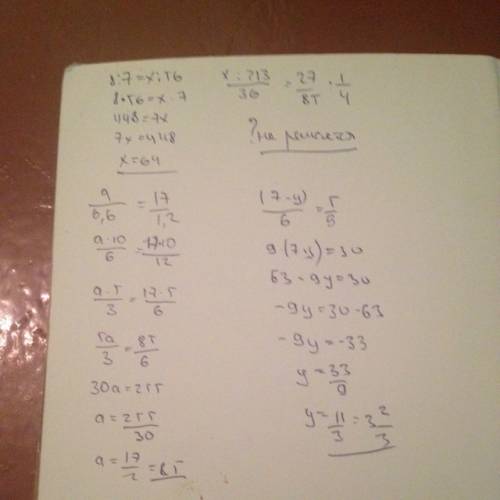 8:7=x:56
8·56=x·7
448=7x
7x=448
x=64
x:213/36 = 27/85 · 1/4
? не решается
a/0,6 = 17/1,2
a·10/6 = 17·10/12
a·5/3 = 17·5/6
5a/3 = 85/6
30a=255
a=255/30
a=17/2=8,5
(7-y)/6 = 5/9
9(7-y)=30
63-9y=30
-9y=30-63
-9y=-33
y=33/9
y=11/3=3 2/3